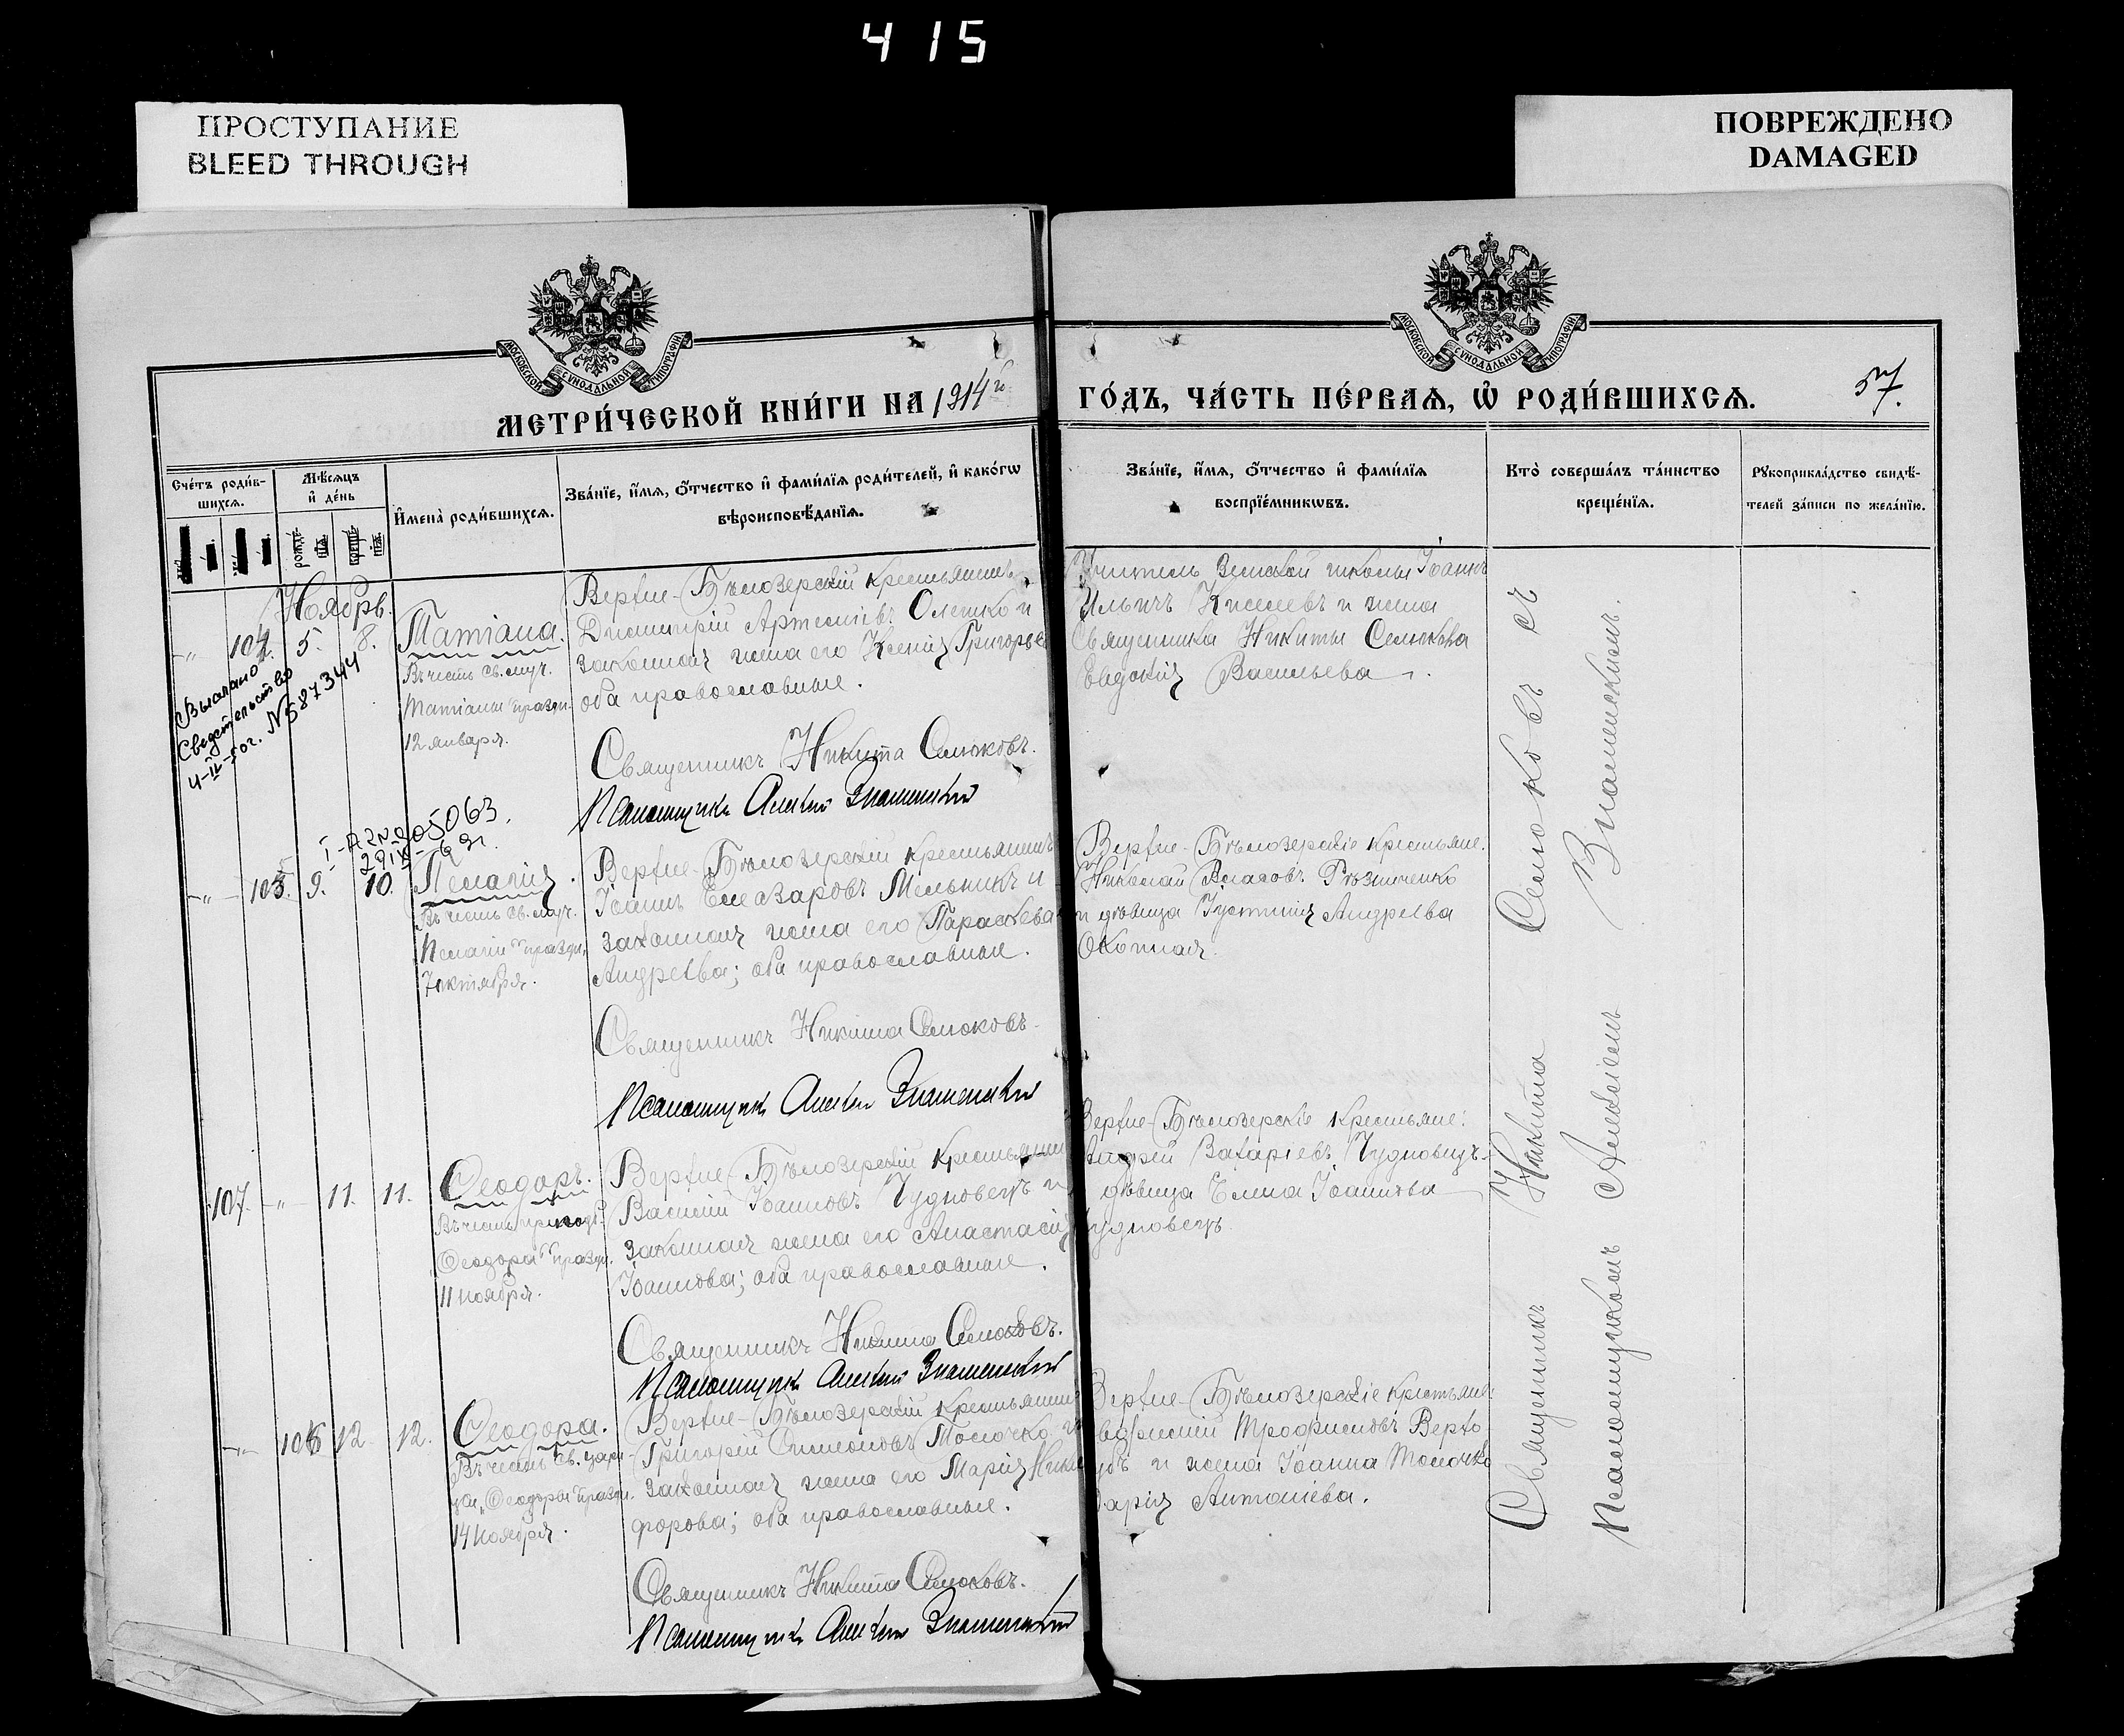 415
ПРОСТУПАНИЕ
BLEED THROUGH
ПОВРЕЖДЕНО
DAMAGED
МОСКОВСКОЙ СѴНОДАЛЬНОЙ ТИПОГРАФІИ
МОСКОВСКОЙ СѴНОДАЛЬНОЙ ТИПОГРАФІИ
МЕТРИ́ЧЕСКОЙ КНИ́ГИ НА 1914й
ГО́ДЪ, ЧА́СТЬ ПЕ́РВАѦ, Ѡ҆ РОДИ́ВШИХСѦ.
57.
Сче́тъ роди́в-
шихсѧ.
Мѣ́сѧцъ
и҆ де́нь
рожде-
нїѧ.
креще-
нїѧ.
И҆мена̀ роди́вшихсѧ.
Зва́нїе, и҆́мѧ, ѻ҆́тчество и҆ фами́лїѧ роди́телей, и҆ како́гѡ
вѣроисповѣ́данїѧ.
Зва́нїе, и҆́мѧ, ѻ҆́тчество и҆ фами́лїѧ
воспрїе́мникѡвъ.
Кто̀ соверша́лъ та́инство
креще́нїѧ.
Рꙋкоприкла́дство свидѣ́-
телей за́писи по жела́нїю.
Ноябрь.
104. 5. 8.
Татіана.
Въ честь св. муч.
Татіаны праздн.
12 января.
Выдано
Свидетельство
4-II-50г. N587344
Верхне-Бѣлозерскій крестьянинъ
Димитрій Артеміевъ Олешко и
законная жена его Ксенія Григорьева
оба православные.
Священникъ Никита Семоковъ.
Псаломщикъ Алексій Знаменскій
Учитель Земской школы Іоаннъ
Ильичъ Киселевъ и жена
Священника Никиты Семокова
Евдокія Васильева.
I-АЗ №205063.
105. 9. 10.
Пелагія.
Въ честь св. муч.
Пелагіи праздн.
7 октября.
Верхне-Бѣлозерскій крестьянинъ
Іоаннъ Елеазаровъ Мельникъ и
законная жена его Параскева
Андреева; оба православные.
Священникъ Никита Семоковъ.
Псаломщикъ Алексій Знаменскій
Верхне-Бѣлозерскіе крестьяне:
Николай Власовъ Рѣзниченко
и дѣвица Іустинія Андреева
Окопная.
107. 11. 11.
Ѳеодоръ.
Въ честь преподб.
Ѳеодора праздн.
11 ноября.
Верхне-Бѣлозерскій крестьянин
Василій Іоанновъ Чудновецъ и
законная жена его Анастасія
Іоаннова; оба православные.
Священникъ Никита Семоковъ.
Псаломщикъ Алексій Знаменскій
Верхне-Бѣлозерскіе крестьяне:
Андрей Захаріевъ Чудновецъ
дѣвица Елена Іоаннова
Чудновецъ.
106 12. 12.
Ѳеодора.
Въ честь св. цари-
цы Ѳеодоры праздн.
14 ноября.
Верхне-Бѣлозерскій крестьянин
Григорій Симеоновъ Толочко и
законная жена его Марія Ники
форова; оба православные.
Священникъ Никита Семоковъ.
Псаломщикъ Алексій Знаменскій
Верхне-Бѣлозерскіе крестьяне
Трофимовъ Верхо
и жена Іоанна Толочко
Дарія Антоніева.
Священникъ Никита Семоковъ съ
Псаломщикомъ Алексіемъ Знаменскимъ.